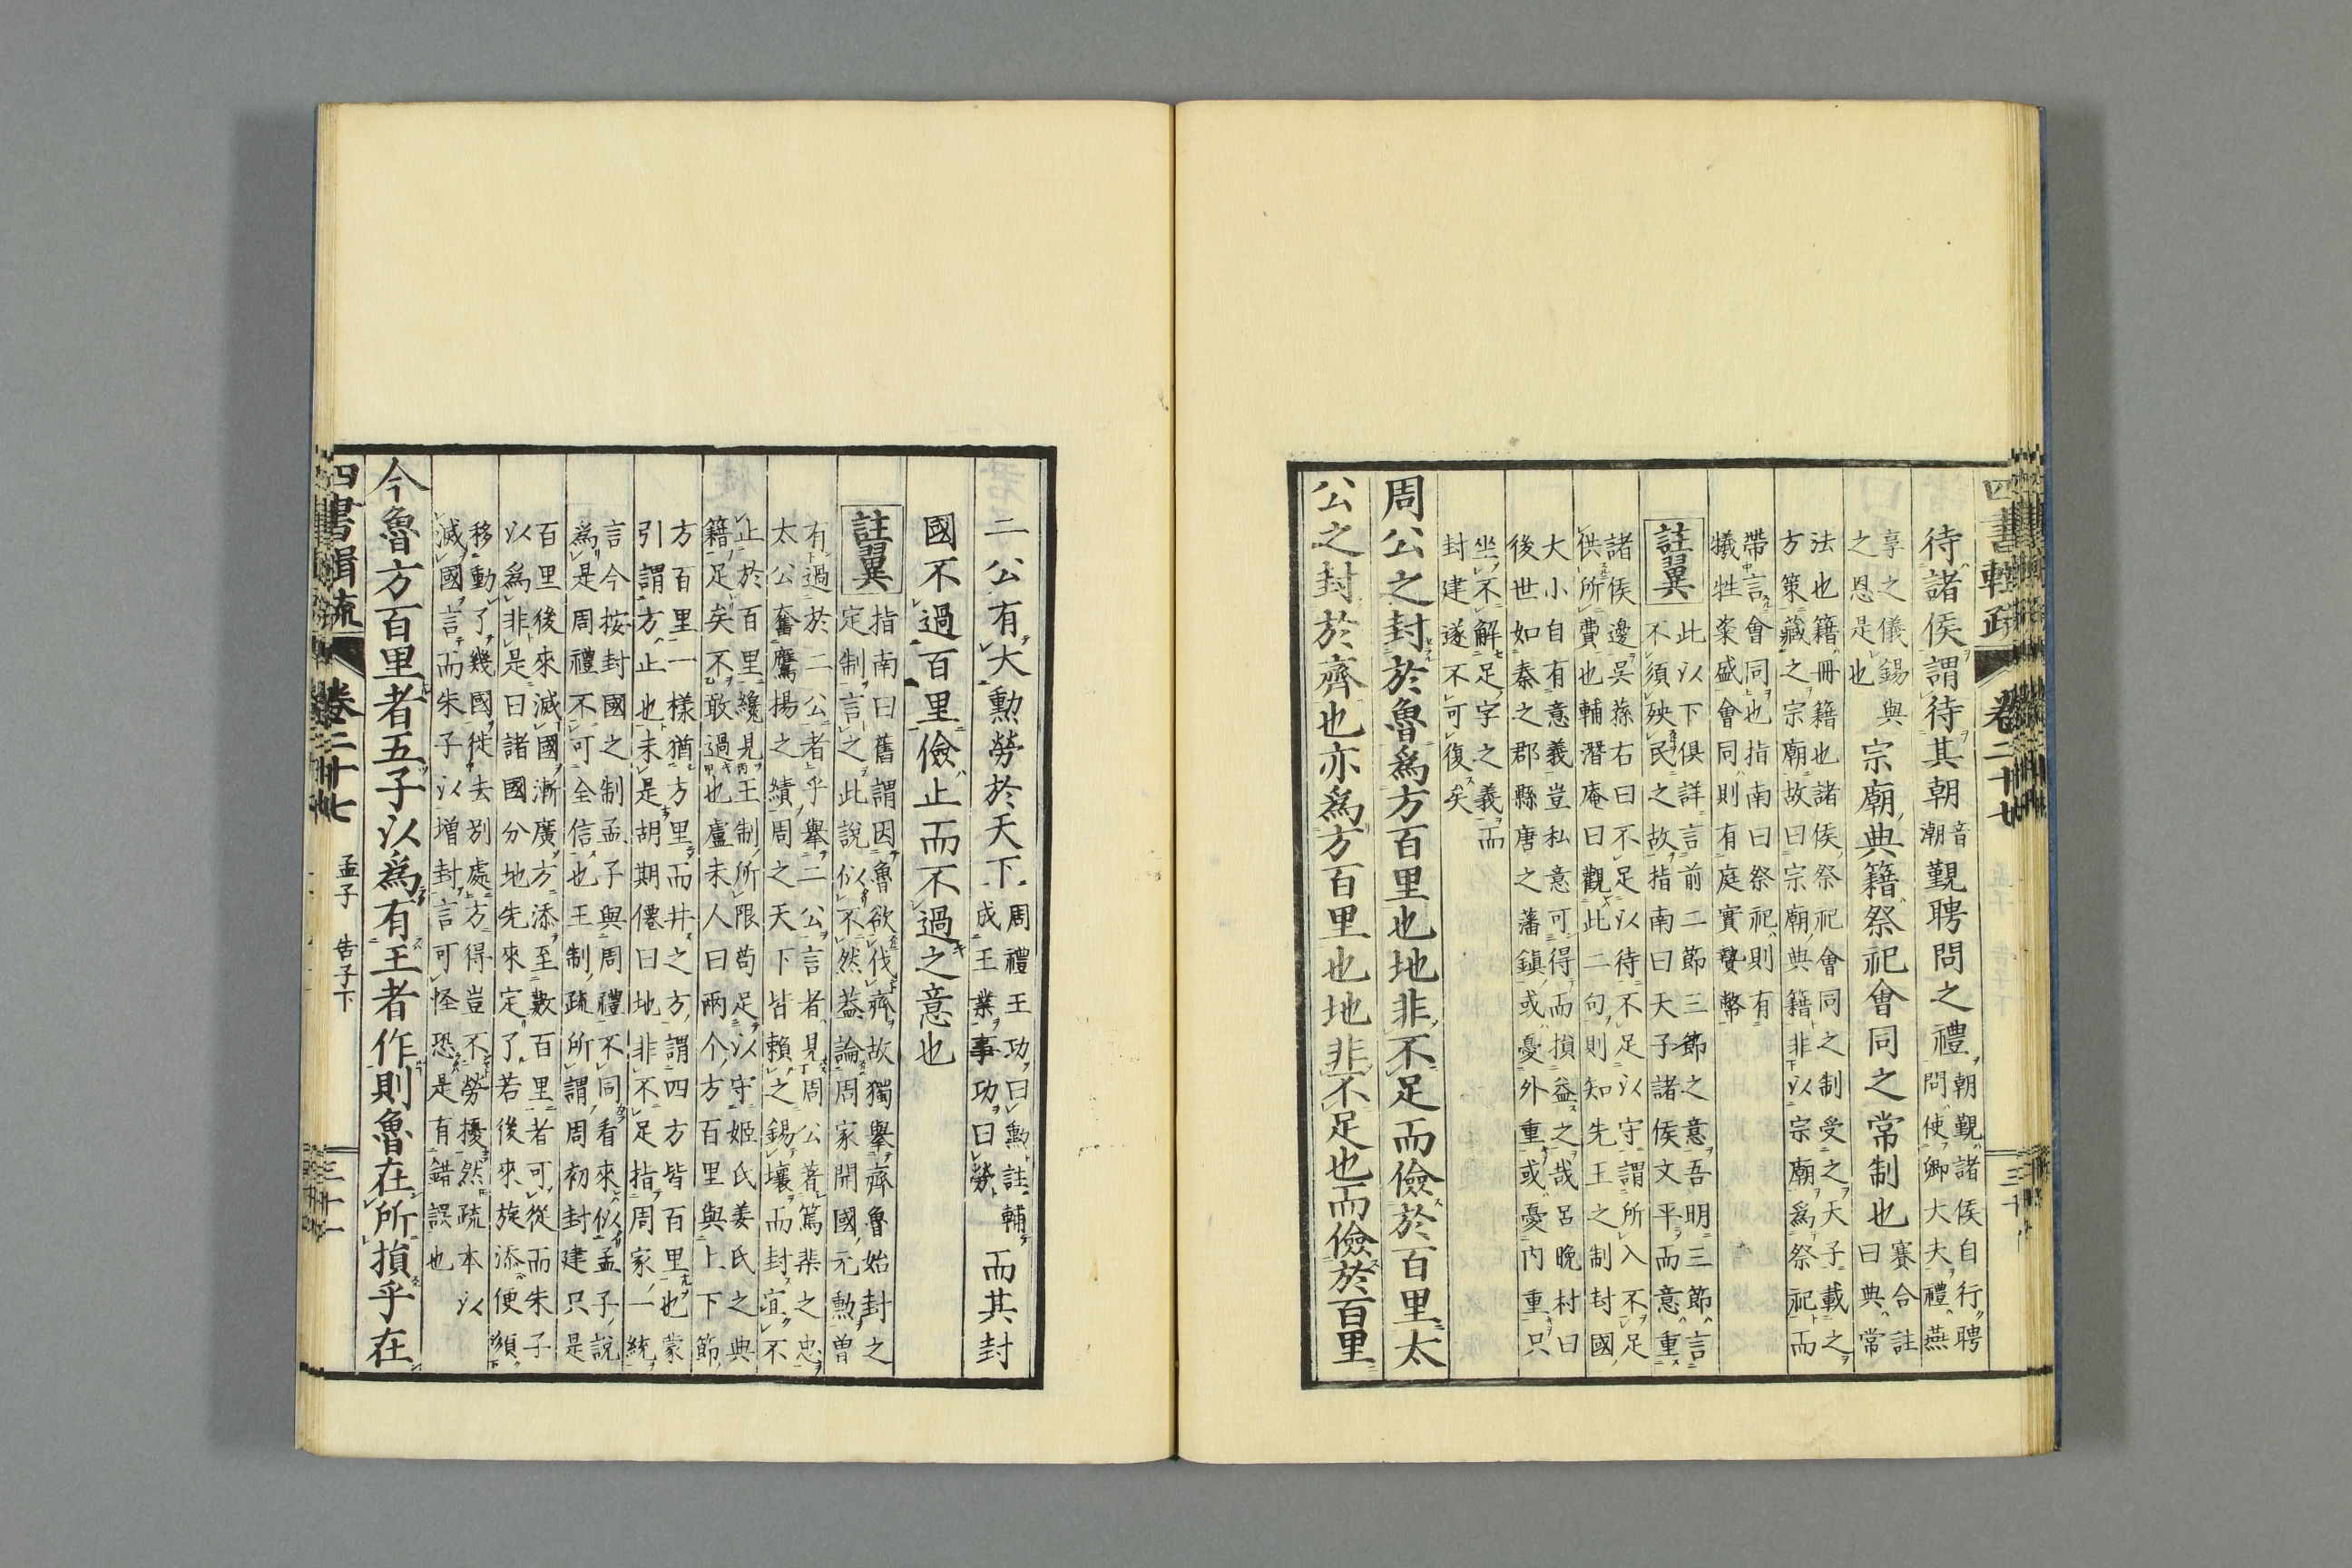 待諸侯謂待其朝音潮覲聘問之禮朝覲諸侯自行聘問使卿大夫禮燕
享之儀錫與之恩是也宗廟典籍祭祀會同之常制也賽合註曰典常
法也籍冊籍也諸侯祭祀會同之制受之天子載之
方策藏之宗廟故曰宗廟典籍非以宗廟爲祭祀而
帶言會同也指南曰祭祀則有
犧牲粢盛會同則有庭實贄幣
註翼此以下俱詳言前二節三節之意吾明三節言
不須殃民之故指南曰天子諸侯文平而意重
諸侯邊吳蓀右曰不足以待不足以守謂所入不足
供所費也輔潛庵曰觀此二句則知先王之制封國
大小自有意義豈私意可得而損益之哉呂晚村曰
後世如秦之郡縣唐之藩鎮或憂外重或憂内重只
坐不解足字之義而
封建遂不可復矣
周公之封於魯爲方百里也地非不足而儉於百里太
公之封於齊也亦爲方百里也地非不足也而儉於百里
二公有大勳勞於天下周禮王功曰勳註輔成王業事功曰勞而其封
國不過百里儉止而不過之意也
註翼指南曰舊謂因魯欲伐齊故獨舉齊魯始封之
定制言之此說似不然益論周家開國元勳曽
有過於二公者乎舉二公言者見周公著篤棐之忠
太公奮鷹揚之績周之天下皆賴之錫壤而封宜不
止於百里纔見王制所限苟足以守姬氏姜氏之典
籍足矣不敢過也盧未人曰兩个方百里與上下節
方百里一樣猶方里而井之方謂四方皆百里也蒙
引謂方止也未是胡期僊曰地非不足指周家一統
言今按封國之制孟子與周禮不同看來似孟子說
爲是周禮不可全信也王制疏所謂周初封建只是
百里後來滅國漸廣方添至數百里者可從而朱子
以爲非是曰諸國分地先來定了若後來旋添便須
移動了幾國徙去別處方得豈不勞擾然疏本以
滅國言而朱子以增封言可怪恐是有錯誤也
今魯方百里者五子以爲有王者作則魯在所損乎在
四書輯疏 卷二十七 孟子 告子下 三十一